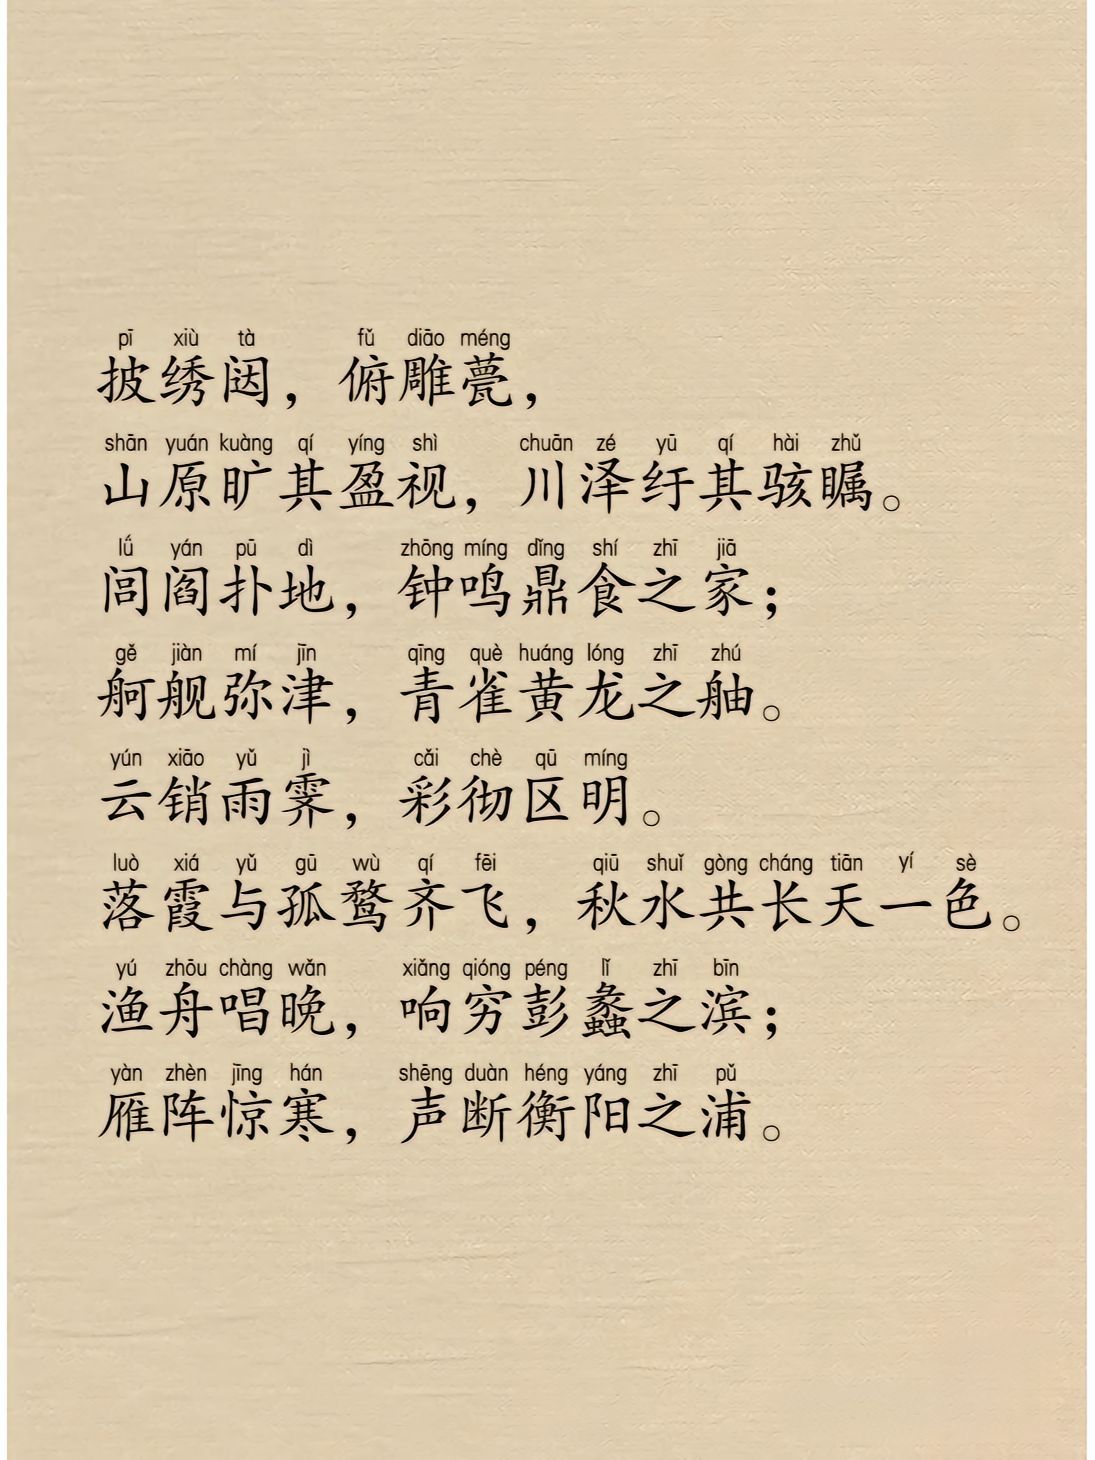 pī xiù tà fǔ diāo méng
披绣闼，俯雕甍，
shān yuán kuàng qí yíng shì chuān zé yū qí hài zhǔ
山原旷其盈视，川泽纡其骇瞩。
lǘ yán pū dì zhōng míng dǐng shí zhī jiā
闾阎扑地，钟鸣鼎食之家；
gě jiàn mí jīn qīng què huáng lóng zhī zhú
舸舰弥津，青雀黄龙之舳。
yún xiāo yǔ jì cǎi chè qū míng
云销雨霁，彩彻区明。
luò xiá yǔ gū wù qí fēi qiū shuǐ gòng cháng tiān yí sè
落霞与孤鹜齐飞，秋水共长天一色。
yú zhōu chàng wǎn xiǎng qióng péng lǐ zhī bīn
渔舟唱晚，响穷彭蠡之滨；
yàn zhèn jīng hán shēng duàn héng yáng zhī pǔ
雁阵惊寒，声断衡阳之浦。